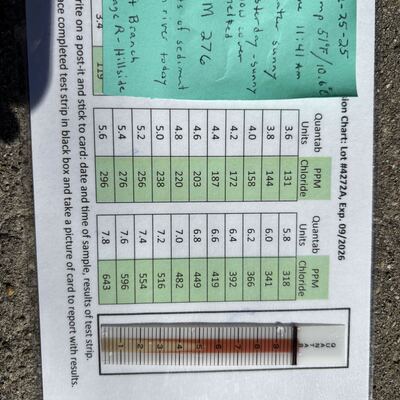 ion Chart: Lot #4272A, Exp. 09/2026
-25-25
mp 51°F/10.6°C
me 11:41 AM
nter sunny
sterday-sunny
ow cover
melted
M 276
s of sediment
n river today
t Branch
nge R-Hillside
3.4 119
Quantab Units PPM Chloride
3.6 131
3.8 144
4.0 158
4.2 172
4.4 187
4.6 203
4.8 220
5.0 238
5.2 256
5.4 276
5.6 296
Quantab Units PPM Chloride
5.8 318
6.0 341
6.2 366
6.4 392
6.6 419
6.8 449
7.0 482
7.2 516
7.4 554
7.6 596
7.8 643
QUANTAB
9
8
7
6
5
4
3
2
1
rite on a post-it and stick to card: date and time of sample, results of test strip.
ace completed test strip in black box and take a picture of card to report with results.